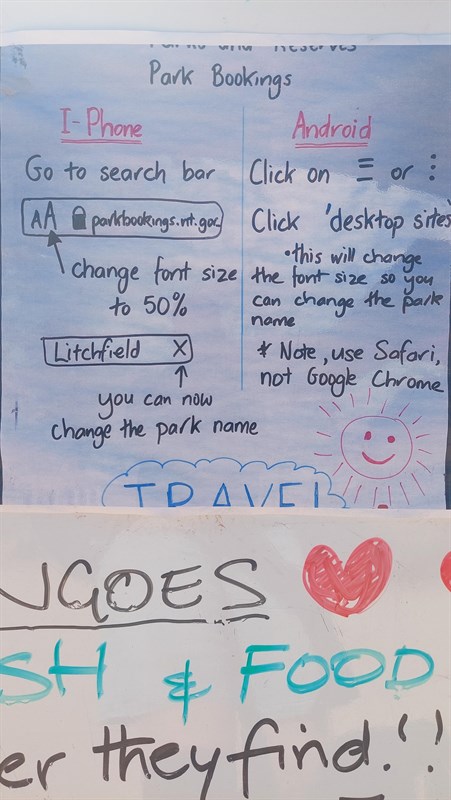 Parks and Reserves
Park Bookings
I-Phone
Go to search bar
AA parkbookings.nt.gov
change font size
to 50%
Litchfield X
you can now
change the park name
Android
Click on ☰ or ⋮
Click 'desktop sites'
•this will change
the font size so you
can change the park
name
* Note, use Safari,
not Google Chrome
TRAVEL
NGOES
SH & FOOD
er they find.!!